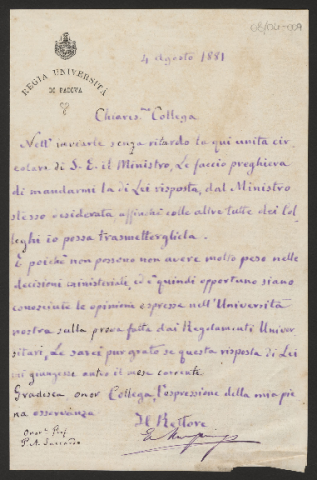 REGIA UNIVERSITÀ
DI PADOVA
4 Agosto 1881
Chiaris.mo Collega
Nell' inviarle senza ritardo la qui unita cir-
colare di S. E. il Ministro, Le faccio preghiera
di mandarmi la di Lei risposta, dal Ministro
stesso desiderata affinchè colle altre tutte dei Col-
leghi io possa trasmettergliela.
E poichè non possono non avere molto peso nelle
decisioni ministeriali, ed è quindi opportuno siano
conosciute le opinioni espresse nell' Università
nostra sulla prova fatta dai Regolamenti Univer-
sitari, Le sarei pur grato se questa risposta di Lei
mi giungesse entro il mese corrente.
Gradisca onor Collega, l'espressione della mia pie-
na osservanza
Il Rettore
Onor. Prof
P. A. Saccardo